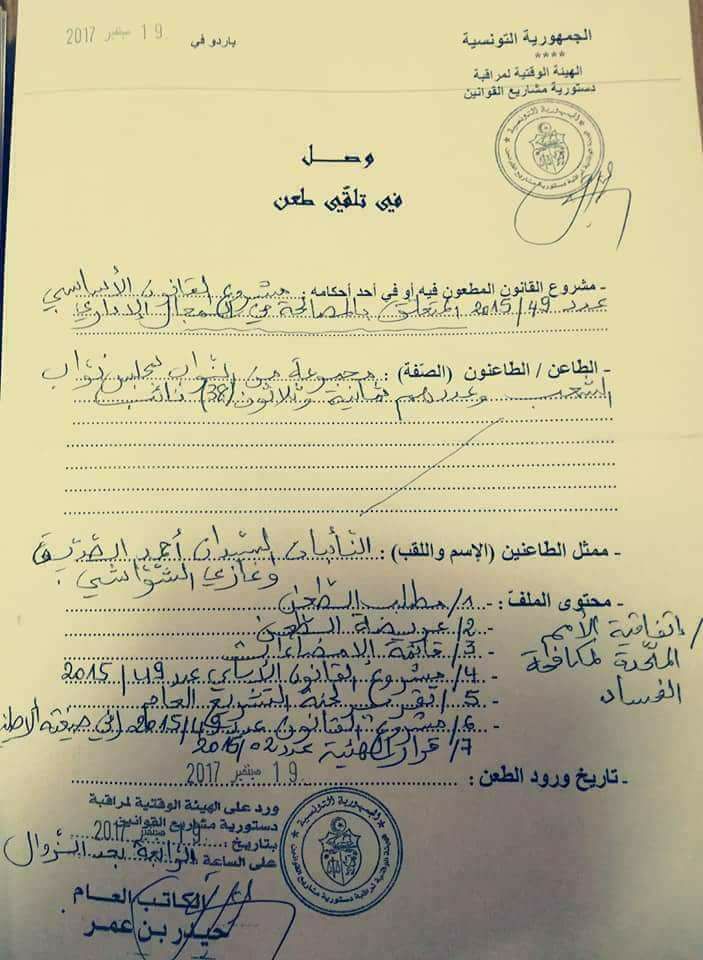 الجمهورية التونسية
****
الهيئة الوقتية لمراقبة
دستورية مشاريع القوانين
باردو في 19 سبتمبر 2017
وصل
في تلقّي طعن
- مشروع القانون المطعون فيه أو في أحد أحكامه : مشروع القانون الأساسي
عدد 2015/49 المتعلق بالمصالحة في المجال الإداري
- الطاعن / الطاعنون (الصّفة) : مجموعة من النواب بمجلس نواب
الشعب وعددهم ثمانية وثلاثون (38) نائب
- ممثل الطاعنين (الإسم واللقب) : النائبان السيدان أحمد الصدّيق
وغازي الشوّاشي
- محتوى الملفّ : - 1/ مطلب الطعن
- 2/ عريضة الطعن
- 3/ قائمة الامضاءات
- 4/ مشروع القانون الأساسي عدد 49/2015
- 5/ تقرير لجنة التشريع العام
- 6/ مشروع القانون عدد 2015/49 في صيغته
7/ قرار الهيئة عدد 02/2015
/ اتفاقية الأمم
المتّحدة لمكافحة
الفساد
- تاريخ ورود الطعن : 19 سبتمبر 2017
ورد على الهيئة الوقتية لمراقبة
دستورية مشاريع القوانين
بتاريخ : 19 سبتمبر 2017
على الساعة الرابعة بعد الزوال
الكاتب العام
حيدر بن عمر